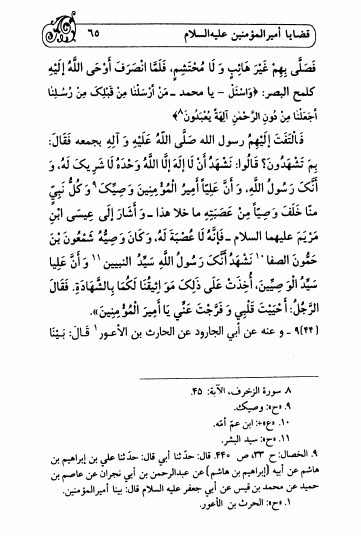 قضايا أميرالمؤمنين عليه‌السلام
٦٥
فَصَلَّى بِهِمْ غَيْرَ هَائِبٍ وَ لَا مُحْتَشِمٍ، فَلَمَّا انْصَرَفَ أَوْحَى اللَّهُ إِلَيْهِ
كلمح البصر: ﴿وَاسْئَلْ – يا محمد – مَنْ أَرْسَلْنَا مِنْ قَبْلِكَ مِنْ رُسُلِنَا
أَجَعَلْنَا مِنْ دُونِ الرَّحْمٰنِ آلِهَةً يُعْبَدُونَ﴾٨
فَالْتَفَتَ إِلَيْهِمْ رسول الله صَلَّى اللَّهُ عَلَيْهِ وَ آلِهِ بجمعه فَقَالَ:
بِمَ تَشْهَدُونَ؟ قَالُوا: نَشْهَدُ أَنْ لَا إِلَهَ إِلَّا اللَّهُ وَحْدَهُ لَا شَرِيكَ لَهُ، وَ
أَنَّكَ رَسُولُ اللَّهِ، وَ أَنَّ عَلِيّاً أَمِيرُ الْمُؤْمِنِينَ وَصِيُّكَ٩ وَ كُلُّ نَبِيٍّ
منّا خَلَفَ وَصِيّاً مِنْ عَصَبَتِهِ ما خلا هذا – وَ أَشَارَ إِلَى عِيسَى ابْنِ
مَرْيَمَ عليهما السلام – فَإِنَّهُ لَا عُصْبَةَ لَهُ، وَ كَانَ وَصِيُّهُ شَمْعُونَ بْنَ
حَمُّونَ الصفا١٠ نَشْهَدُ أَنَّكَ رَسُولُ اللَّهِ سَيِّدُ النبيين١١ وَ أَنَّ عَلِيا
سَيِّدُ الْوَصِيِّينَ، أُخِذَتْ عَلَى ذَلِكَ مَوَاثِيقُنَا لَكُمَا بِالشَّهَادَةِ. فَقَالَ
الرَّجُلُ: أَحْيَيْتَ قَلْبِي وَ فَرَّجْتَ عَنِّي يَا أَمِيرَ الْمُؤْمِنِينَ».
(٢٤)٩ – و عنه عن أبي الجارود عن الحارث بن الأعور١ قَالَ: بَيْنَا
٨ سورة الزخرف، الآية: ٤٥.
٩. «ح»: وصيك.
١٠. «ع»: ابن عمّ أمّه.
١١. «ح»: سيد البشر.
٩. الخصال: ح ٣٣، ص ٤٤٠. قال: حدّثنا أبي قال: حدّثنا علي بن إبراهيم بن
هاشم عن أبيه (إبراهيم بن هاشم) عن عبدالرحمن بن أبي نجران عن عاصم بن
حميد عن محمد بن قيس عن أبي جعفر عليه السلام قال: بينا أميرالمؤمنين.
١. «ح»: الحرث بن الأعور.